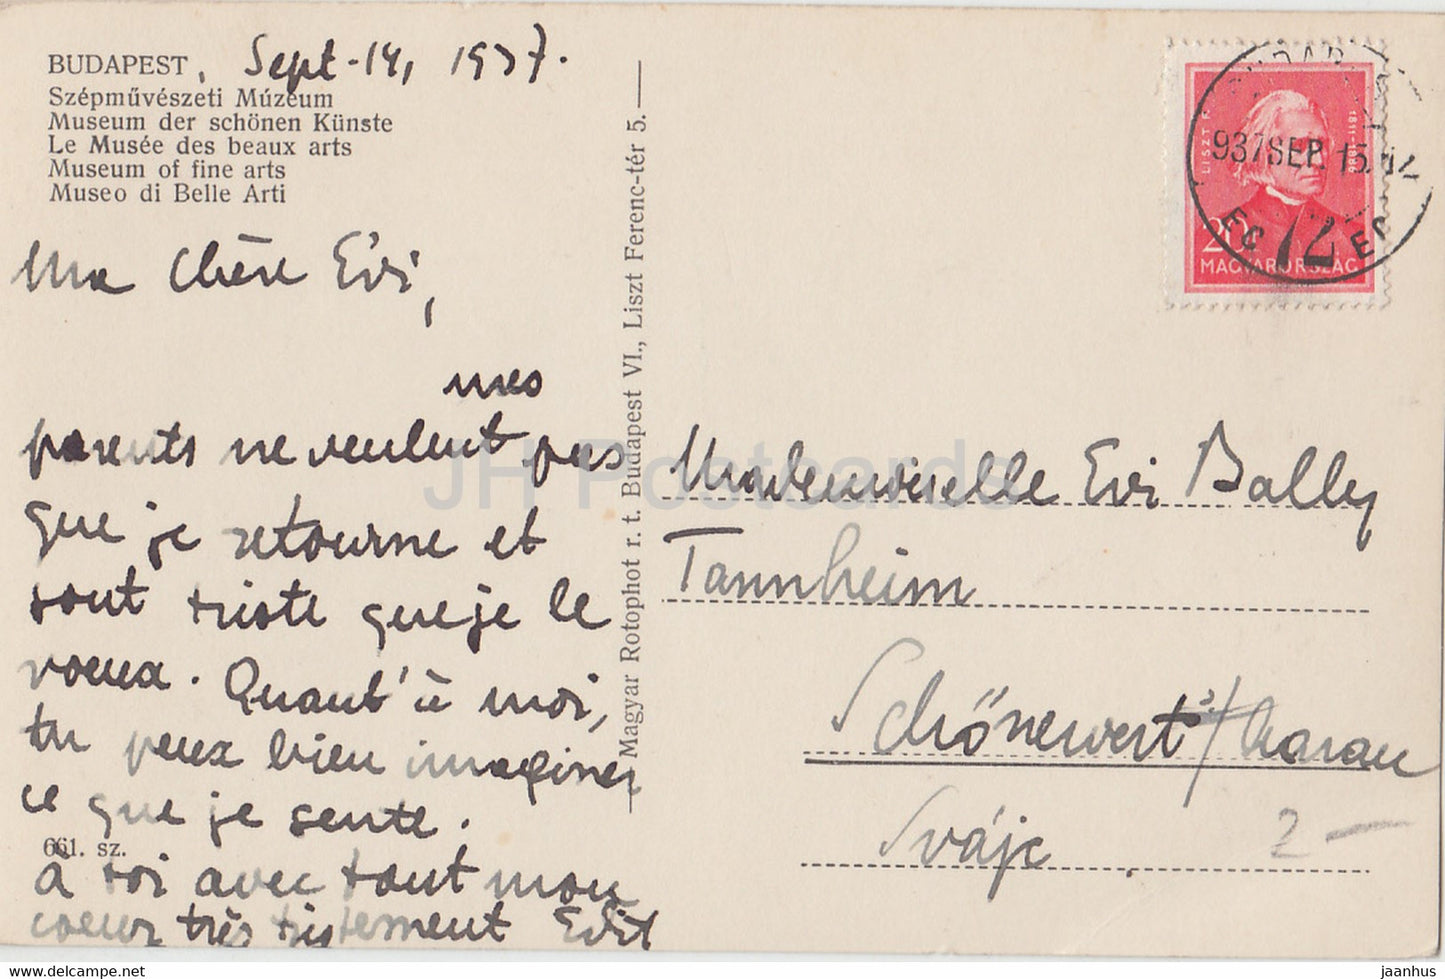 BUDAPEST, Sept-14, 1937.
Szépművészeti Múzeum
Museum der schönen Künste
Le Musée des beaux arts
Museum of fine arts
Museo di Belle Arti
Ma Chère Evi,
mes
parents ne veulent pas
que je retourne et
sont triste que je le
veux. Quant'à moi,
tu peux bien imaginer
ce que je sente.
661. sz.
à toi avec tout mon
coeur très tristement Edit
Magyar Rotophot r. t. Budapest VI., Liszt Ferenc-tér 5.
LISZT F.
1811-1886
20
MAGYARORSZÁG
BUDAPEST
937 SEP. 15. 12
72
Mademoiselle Evi Bally
Tannheim
Schönewert / Aarau
Svájc
2 —
JH Postcards
jaanhus